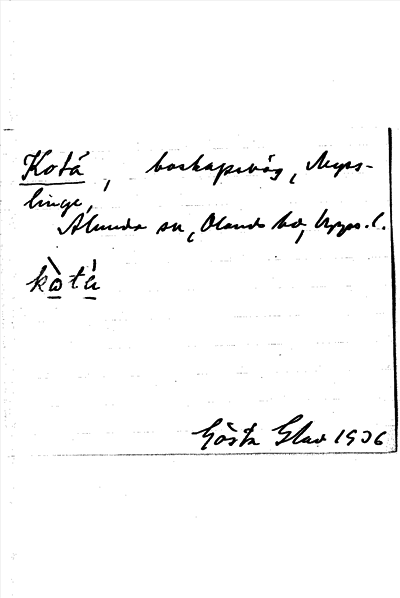 Kotå, boskapsväg, Myrs-
linge,
Alunda sn, Olands hd, Upps. l.
kòtǻ
Gösta Glav 1936